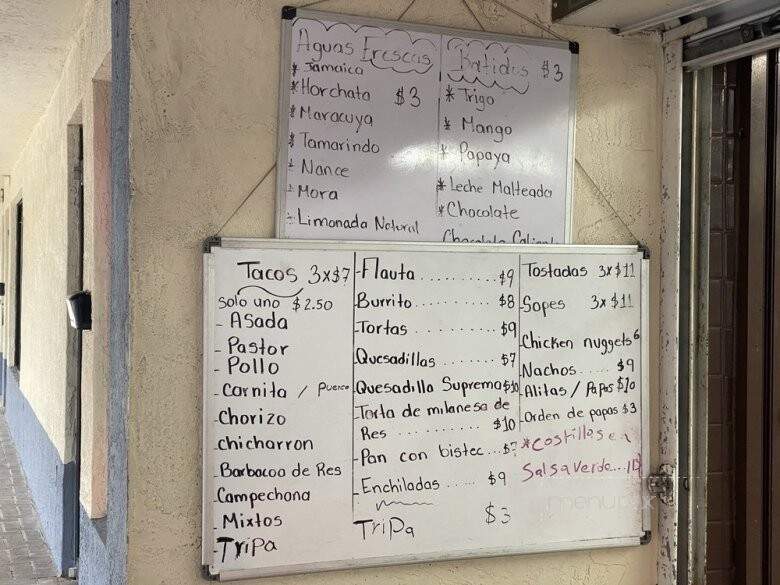 Aguas Frescas
* Jamaica
* Horchata $3
* Maracuya
* Tamarindo
* Nance
* Mora
* Limonada Natural
Batidos $3
* Trigo
* Mango
* Papaya
* Leche Malteada
* Chocolate
Chocolate Caliente
Tacos 3x$7
Solo uno $2.50
- Asada
- Pastor
- Pollo
- Carnita / Puerco
- Chorizo
- Chicharron
- Barbacoa de Res
- Campechana
- Mixtos
- Tripa
- Flauta .......... $9
- Burrito .......... $8
- Tortas .......... $9
- Quesadillas ...... $7
- Quesadilla Suprema $10
- Torta de milanesa de
Res .......... $10
- Pan con bistec ... $7
- Enchiladas ..... $9
Tripa $3
- Tostadas 3x $11
- Sopes 3x $11
- Chicken nuggets 6
- Nachos .... $9
- Alitas / Papas $10
- Orden de papas $3
* Costillas en
Salsa Verde...